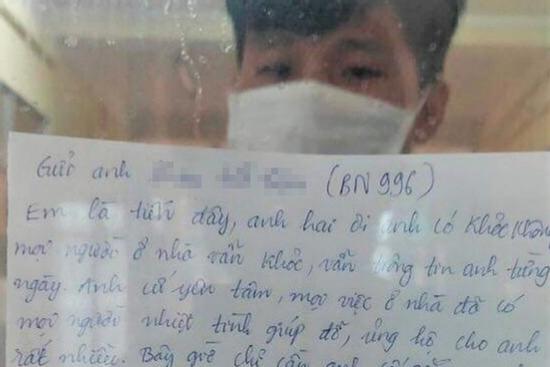 Gửi anh (BN 996)
Em là tiến đây, anh hai ơi anh có khỏe không
mọi người ở nhà vẫn khỏe, vẫn trông tin anh từng
ngày. Anh cứ yên tâm, mọi việc ở nhà đã có
mọi người nhiệt tình giúp đỡ, ủng hộ cho anh
rất nhiều. Bây giờ chỉ cần anh